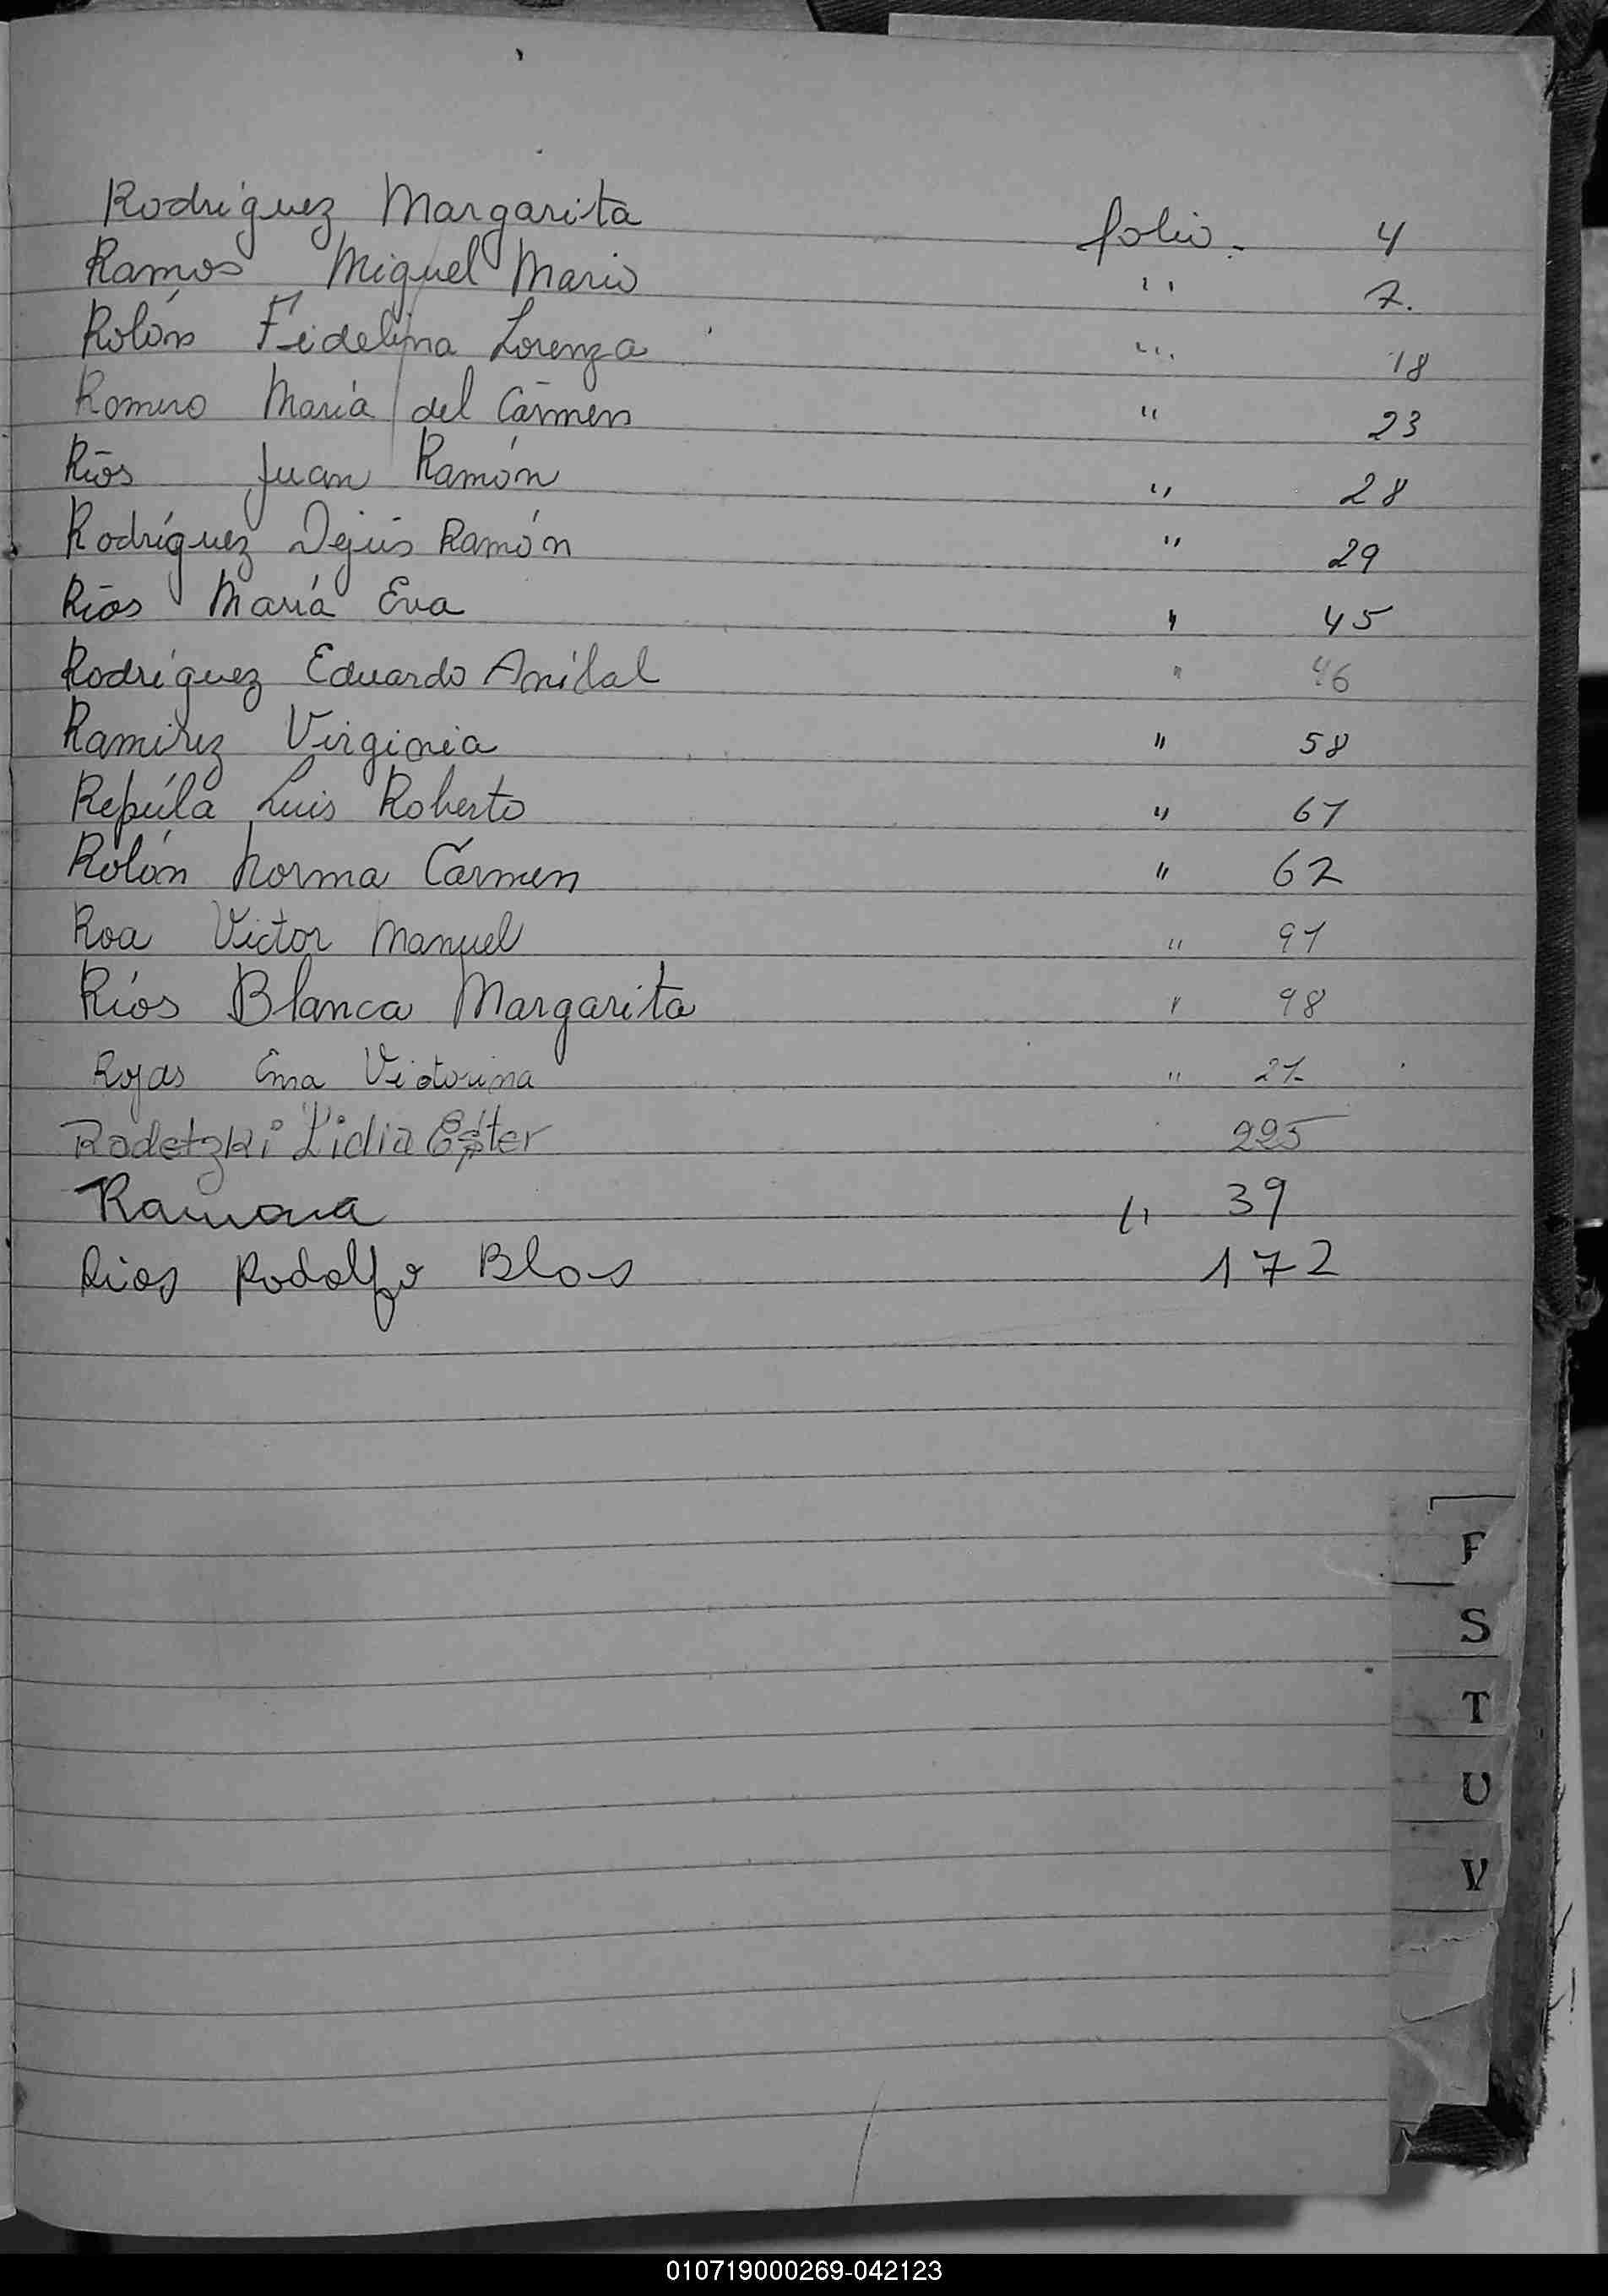 Rodríguez Margarita folio. 4
Ramos Miguel Mario " 7.
Rolón Fidelina Lorenza " 18
Romero María del Cármen " 23
Ríos Juan Ramón " 28
Rodríguez Dejús Ramón " 29
Ríos María Eva " 45
Rodríguez Eduardo Aníbal " 46
Ramírez Virginia " 58
Repúla Luis Roberto " 61
Rolón Norma Cármen " 62
Roa Victor Manuel " 91
Ríos Blanca Margarita " 98
Rojas Ema Victorina " 21
Radetzki Lidia Ester 225
Ramona " 39
Rios Rodolfo Blas 172
F
S
T
U
V
010719000269-042123